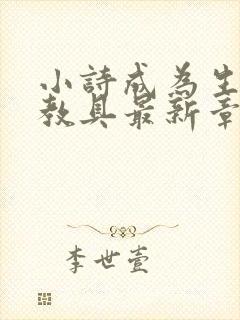 小詩成為生
教具最新章
李世壹